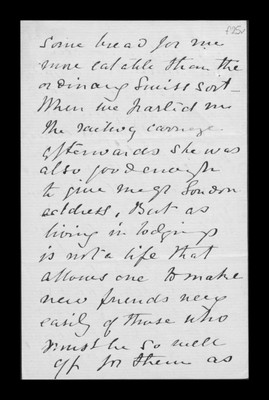 some bread for me
more eatable than the
ordinary Swiss sort_
When we parted in
the railway carriage
afterwards she was
also good enough
to give me her London
address. But as
living in lodgings
is not a life that
allows one to make
new friends very
easily of those who
must be so well
off for them as